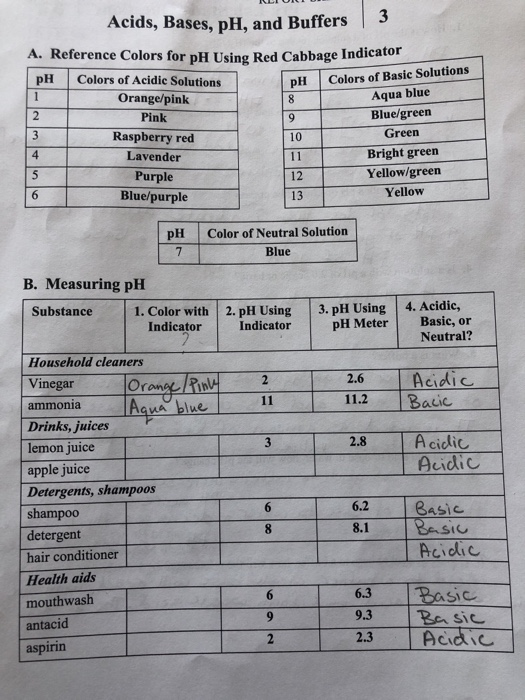 Acids, Bases, pH, and Buffers 3
A. Reference Colors for pH Using Red Cabbage Indicator
pH Colors of Acidic Solutions
1 Orange/pink
2 Pink
3 Raspberry red
4 Lavender
5 Purple
6 Blue/purple
pH Colors of Basic Solutions
8 Aqua blue
9 Blue/green
10 Green
11 Bright green
12 Yellow/green
13 Yellow
pH Color of Neutral Solution
7 Blue
B. Measuring pH
Substance 1. Color with 2. pH Using 3. pH Using 4. Acidic,
Indicator Indicator pH Meter Basic, or
? Neutral?
Household cleaners
Vinegar Orange/Pink 2 2.6 Acidic
ammonia Aqua blue 11 11.2 Bacic
Drinks, juices
lemon juice 3 2.8 Acidic
apple juice Acidic
Detergents, shampoos
shampoo 6 6.2 Basic
detergent 8 8.1 Basic
hair conditioner Acidic
Health aids
mouthwash 6 6.3 Basic
antacid 9 9.3 Basic
aspirin 2 2.3 Acidic